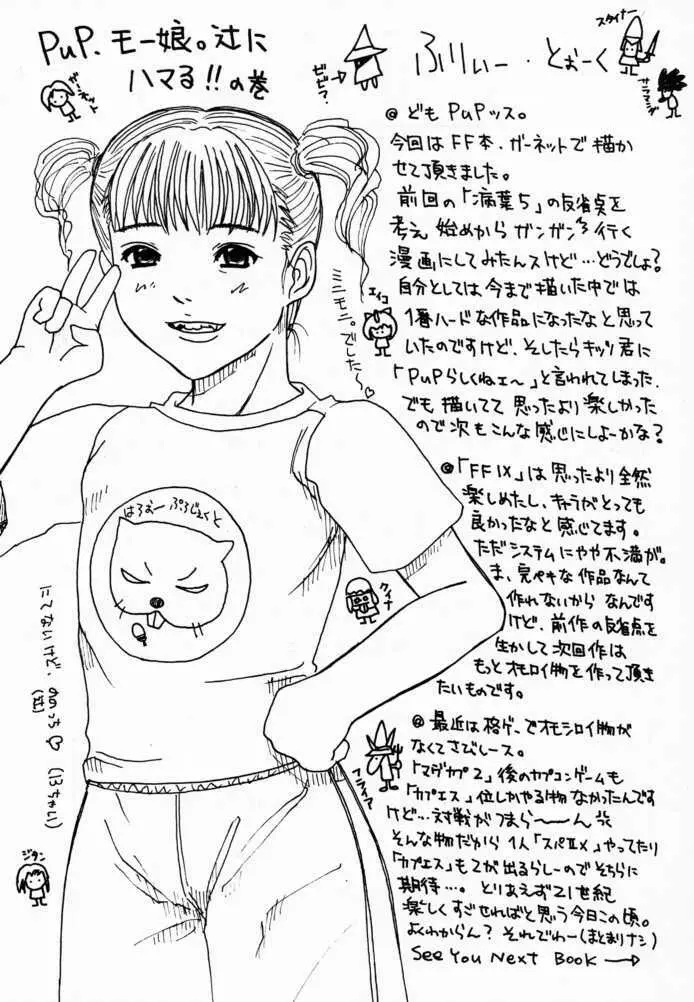 PuP.モー娘。辻に
ハマる!!の巻
ビビ?
ふりぃー・とぉーく
スタイナー
サラマンダ
@ どもPuPッス。
今回はFF本、ガーネットで描か
せて頂きました。
前回の「病葉5」の反省点を
考え始めからガンガン行く
漫画にしてみたんスけど…どうでしょ?
自分としては今まで描いた中では
1番ハードな作品になったなと思って
いたのですけど、そしたらキッツ君に
「PuPらしくねェ〜」と言われてしまった、
でも描いてて思ったより楽しかった
ので次もこんな感じにしよーかな?
エイコ
ミニモニ。でした〜♡
@「FFⅨ」は思ったより全然
楽しめたし、キャラがとっても
良かったなと感じてます。
ただシステムにやや不満が。
ま、完ペキな作品なんて
作れないからなんです
けど、前作の反省点を
生かして次回作は
もっとオモロイ物を作って頂き
たいものです。
クイナ
はろおーぷろじぇくと
にてないけど、ののっち♡(13ちゃい)
(辻)
@ 最近は格ゲーでオモシロイ物が
なくてさびしース。
「マヴカプ2」後のカプコンゲームも
「カプエス」位しかやる物なかったんです
けど…対戦がつまら〜〜ん
そんな物だから1人「スパⅡX」やってたり
「カプエス」も2が出るらしーのでそちらに
期待…。とりあえず21世紀
楽しくすごせればと思う今日この頃。
よくわからん?それでわー(まとまりナシ)
See You Next Book →
フライア
ジタン